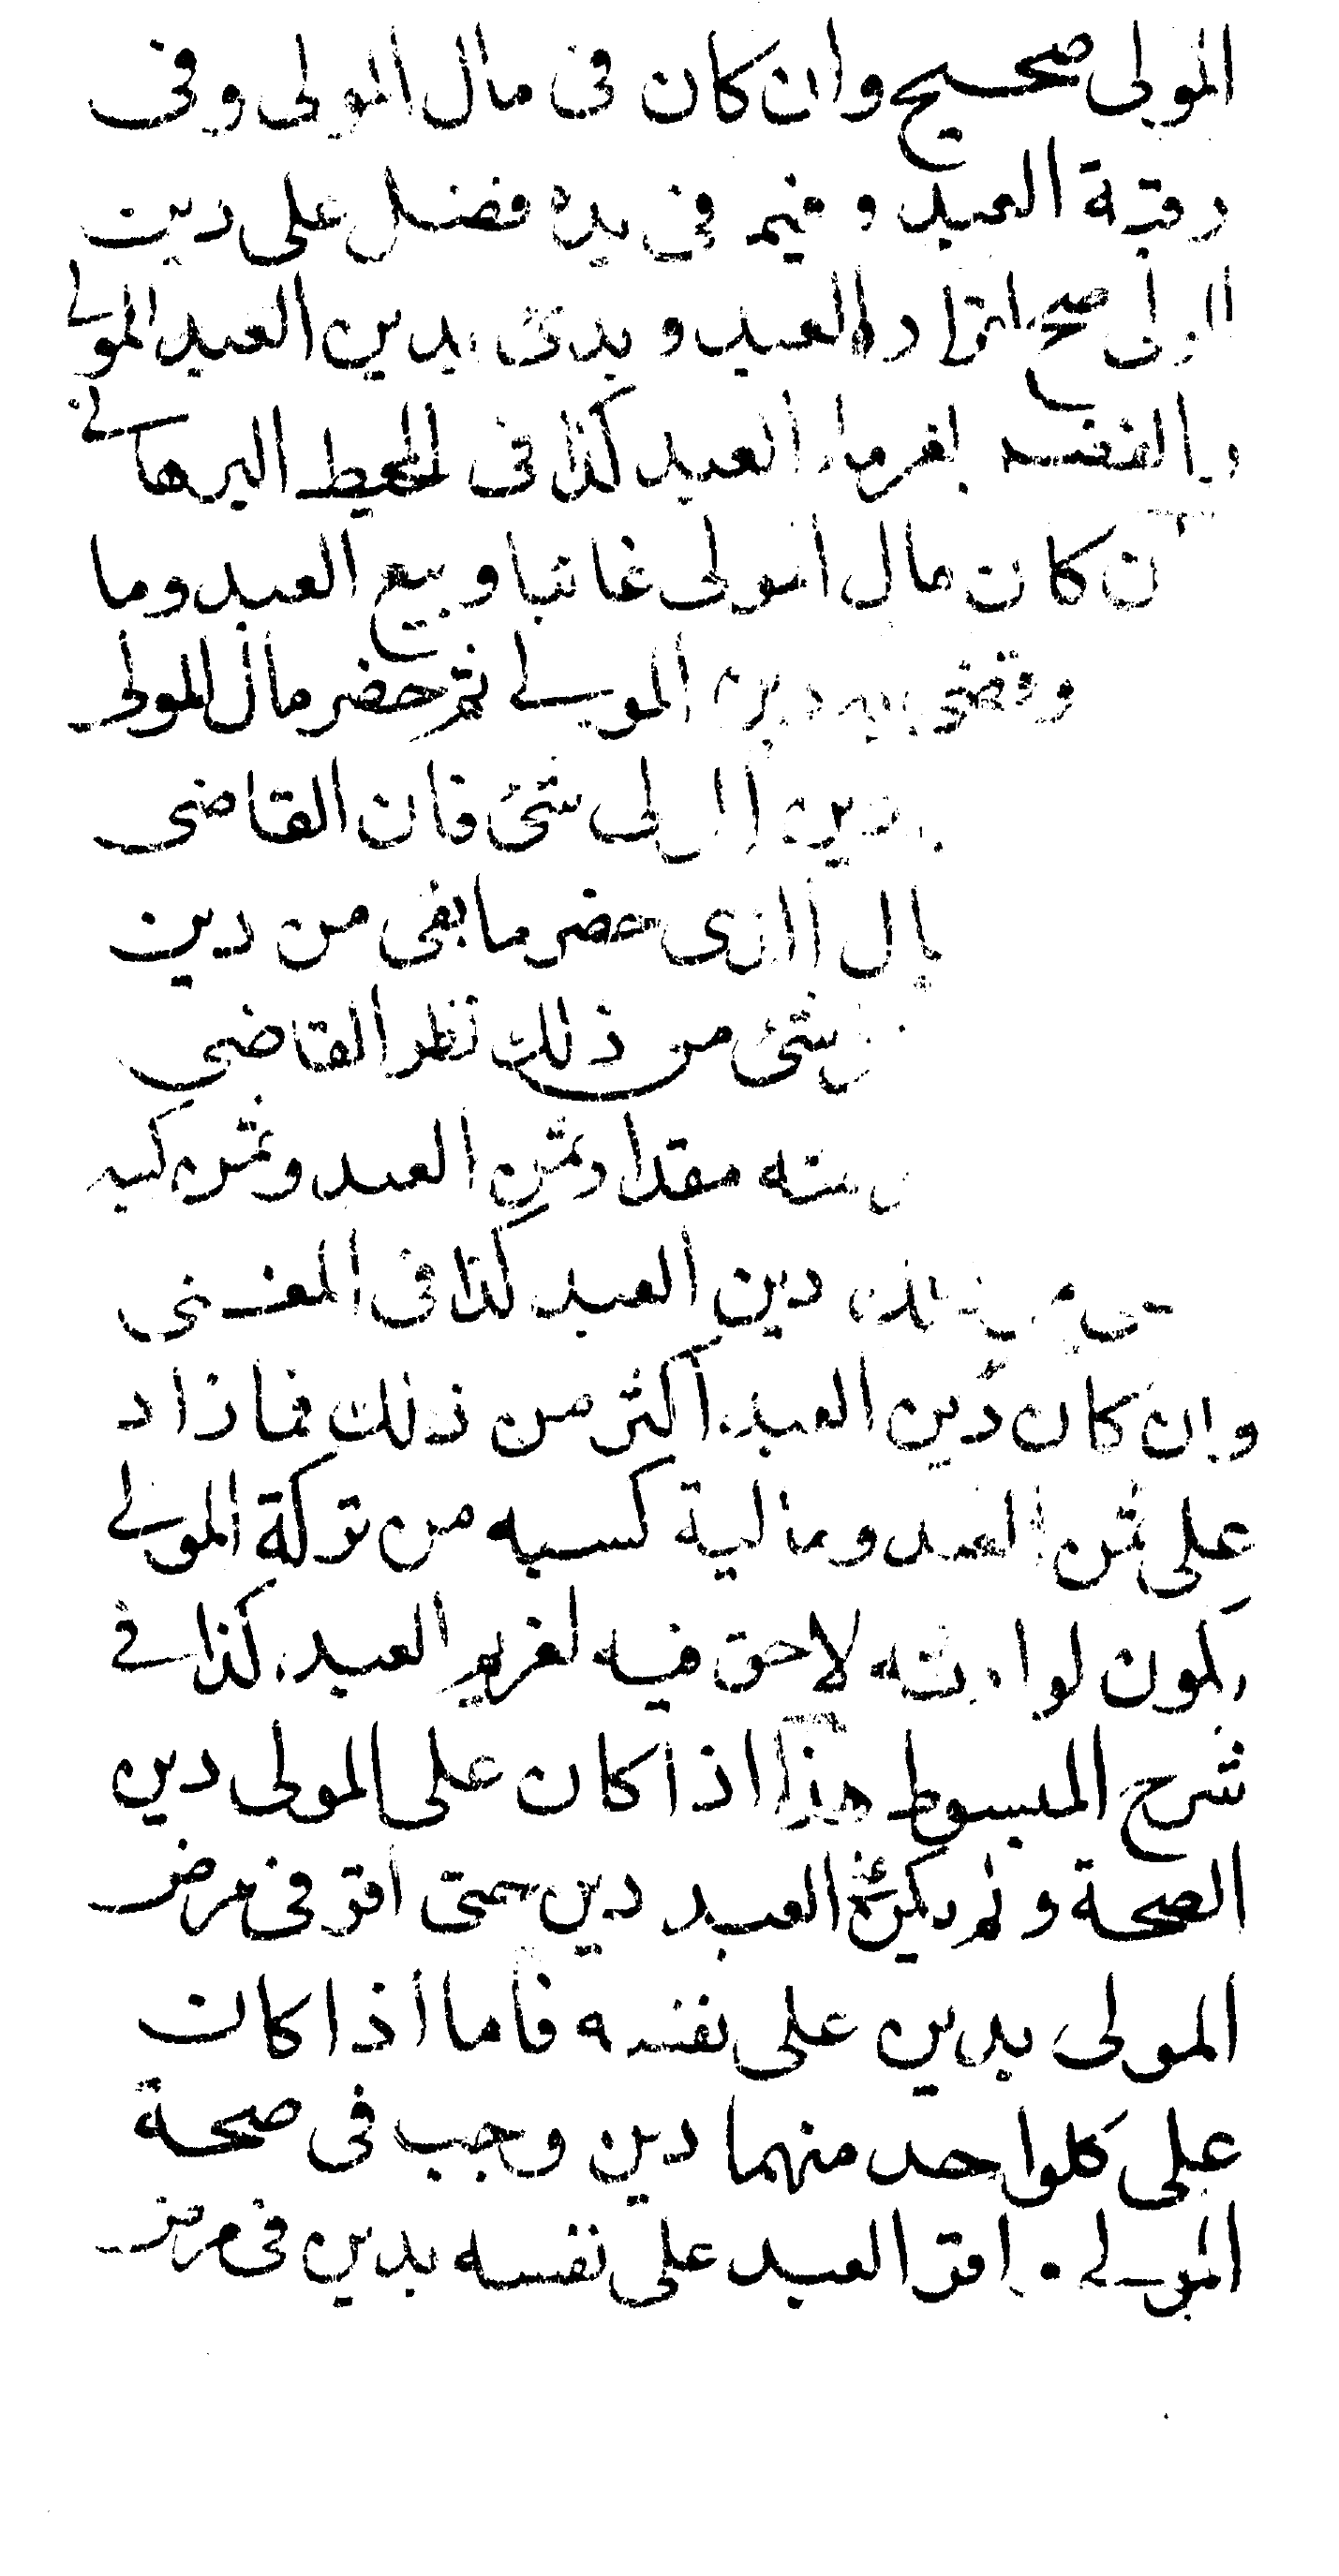 المولى صحيح وان كان فى مال المولى وفى
رقبة العبد وفيما فى يده فضل على دين
المولى صح اقراره العبد وبدئ بدين العبد المولى
العبد كذا فى المحيط البرهانى
ن كان مال المولى غائبا وبيع العبد وما
وقضى دين المولى ثم حضر مال المولى
دين شئ فان القاضى
الذى حضر ما بقى من دين
شئ من ذلك نظر القاضى
مقدار ثمن العبد وثمن كسبه
دين العبد كذا فى المغنى
وان كان دين العبد اكثر من ذلك فما زاد
على ثمن العبد ومالية كسبه من تركة المولى
يكون لوارثه لا حق فيه لغريم العبد كذا فى
شرح المبسوط هذا اذا كان على المولى دين
الصحة ولم يكن على العبد دين حتى اقر فى مرض
المولى بدين على نفسه فاما اذا كان
على كلواحد منهما دين وجب فى صحة
المولى اقر العبد على نفسه بدين فى مرض